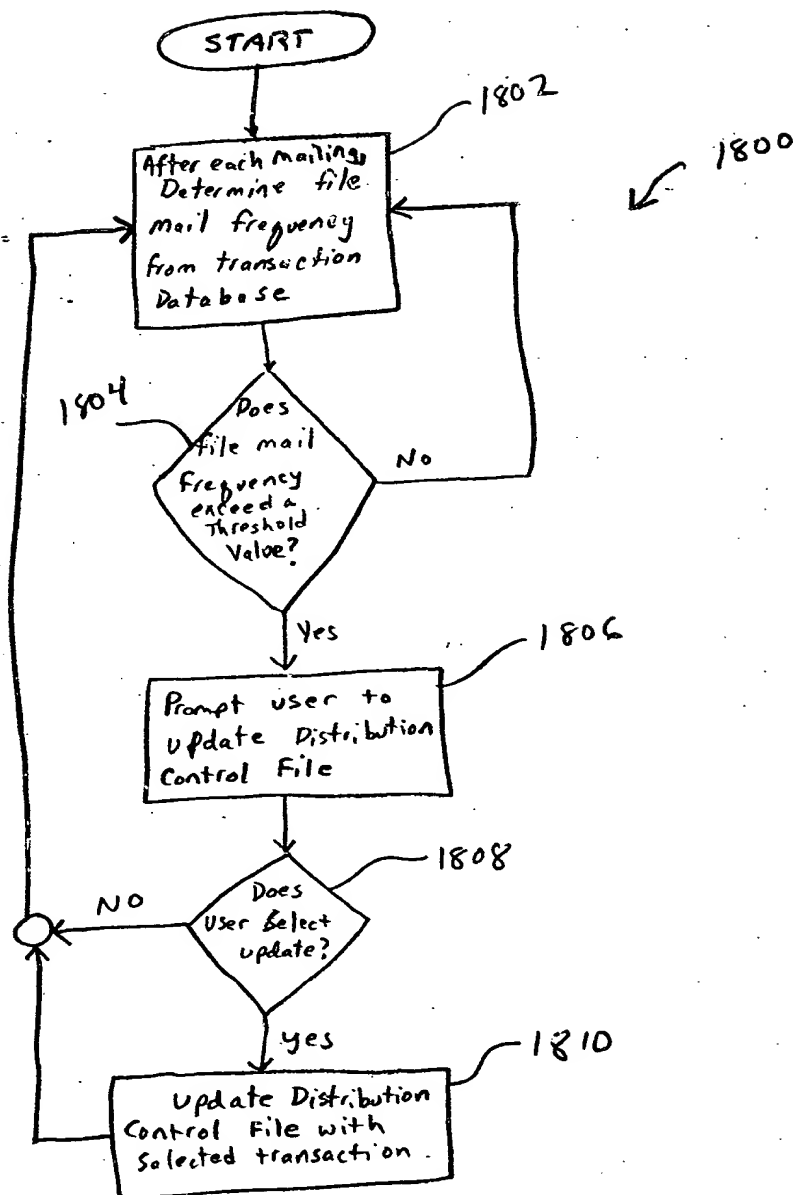 START
1802
1800
After each mailing,
Determine file
mail frequency
from transaction
Database
1804
Does
file mail
frequency
exceed a
Threshold
Value?
No
Yes
1806
Prompt user to
update Distribution
Control File
1808
Does
User Select
update?
NO
yes
1810
update Distribution
Control File with
Selected transaction.